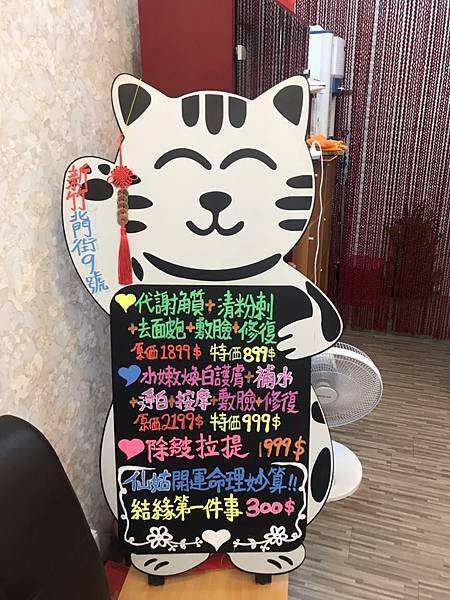 新竹背街9號
代謝角質+清粉刺
+去面皰+敷臉+修復
原価1899$ 特価899$
水嫩煥白護膚+補水
+淨白+按摩+敷臉+修復
原価2199$ 特価999$
除皺拉提 1999$
仙姑開運命理妙算!!
結緣第一件事 300$